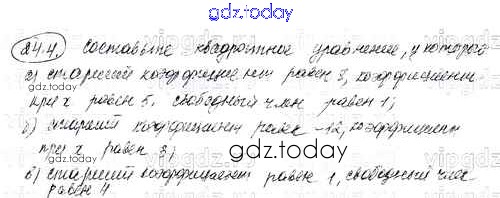 gdz.today
24.4. Составьте квадратное уравнение, у которого
а) старший коэффициент равен 8, коэффициент
gdz.today
при x равен 5, свободный член равен 1;
б) старший коэффициент равен -12, коэффициент
при x равен 3;
gdz.today
в) старший коэффициент равен 1, свободный член
равен 4